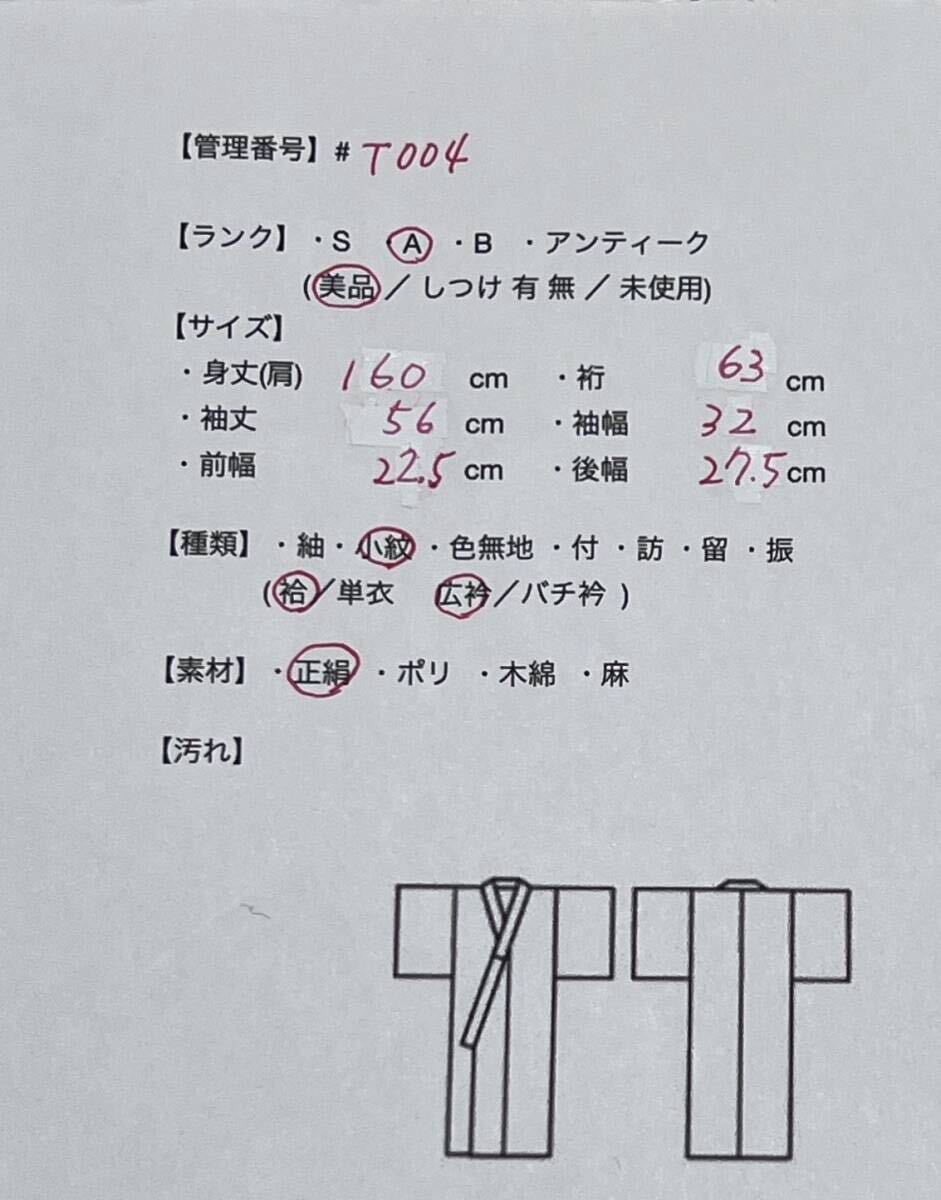 【管理番号】# T004
【ランク】・S ・A ・B ・アンティーク
(美品／しつけ 有 無／未使用)
【サイズ】
・身丈(肩) 160 cm ・裄 63 cm
・袖丈 56 cm ・袖幅 32 cm
・前幅 22.5 cm ・後幅 27.5 cm
【種類】・紬・小紋・色無地・付・訪・留・振
(袷／単衣 広衿／バチ衿)
【素材】・正絹・ポリ・木綿・麻
【汚れ】